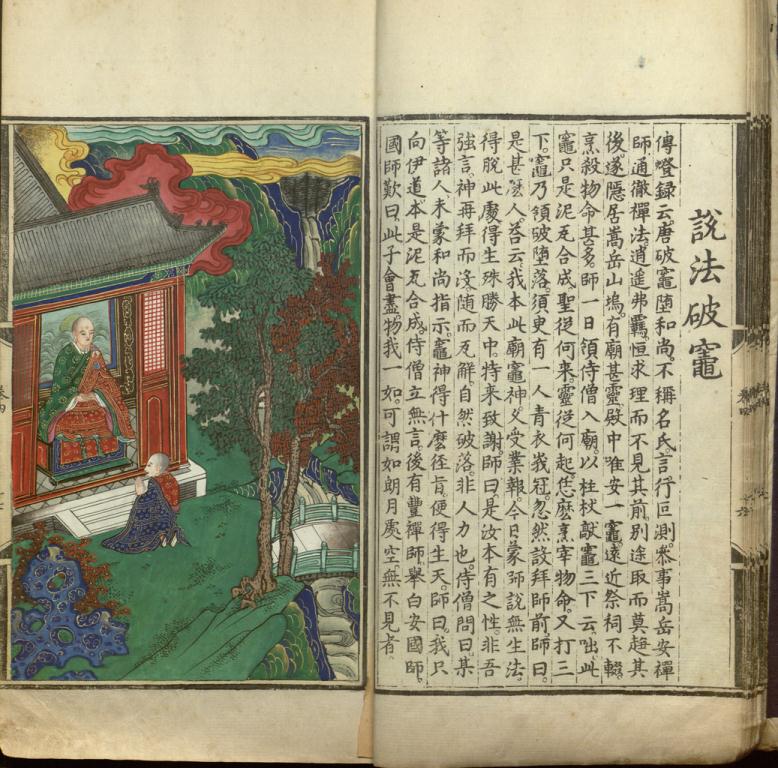 說法破竈
傳燈録云。唐破竈墮和尚。不稱名氏。言行叵測。叅事嵩岳安禪
師通徹禪法。逍遥弗羈。恒求理而不見其前。别途取而莫趨其
後。遂隱居嵩岳山塢。有廟甚靈。殿中唯安一竈。遠近祭祠不輟。
烹殺物命甚多。師一日領侍僧入廟。以柱杖敲竈三下云。咄。此
竈只是泥瓦合成。聖從何來。靈從何起。恁麽烹宰物命。又打三
下。竈乃傾破墮落。須臾有一人。青衣峩冠。忽然設拜師前。師曰。
是甚麽人。荅云。我本此廟竈神。久受業報。今日蒙師說無生法。
得脫此處。得生殊勝天中。特來致謝。師曰。是汝本有之性。非吾
強言。神再拜而没。隨而瓦解。自然破落。非人力也。侍僧問曰。某
等諸人。未蒙和尚指示。竈神得什麽徑旨。便得生天。師曰。我只
向伊道。本是泥瓦合成。侍僧立無言。後有豐禪師。舉白安國師。
國師歎曰。此子會盡。物我一如。可謂如朗月處空。無不見者。